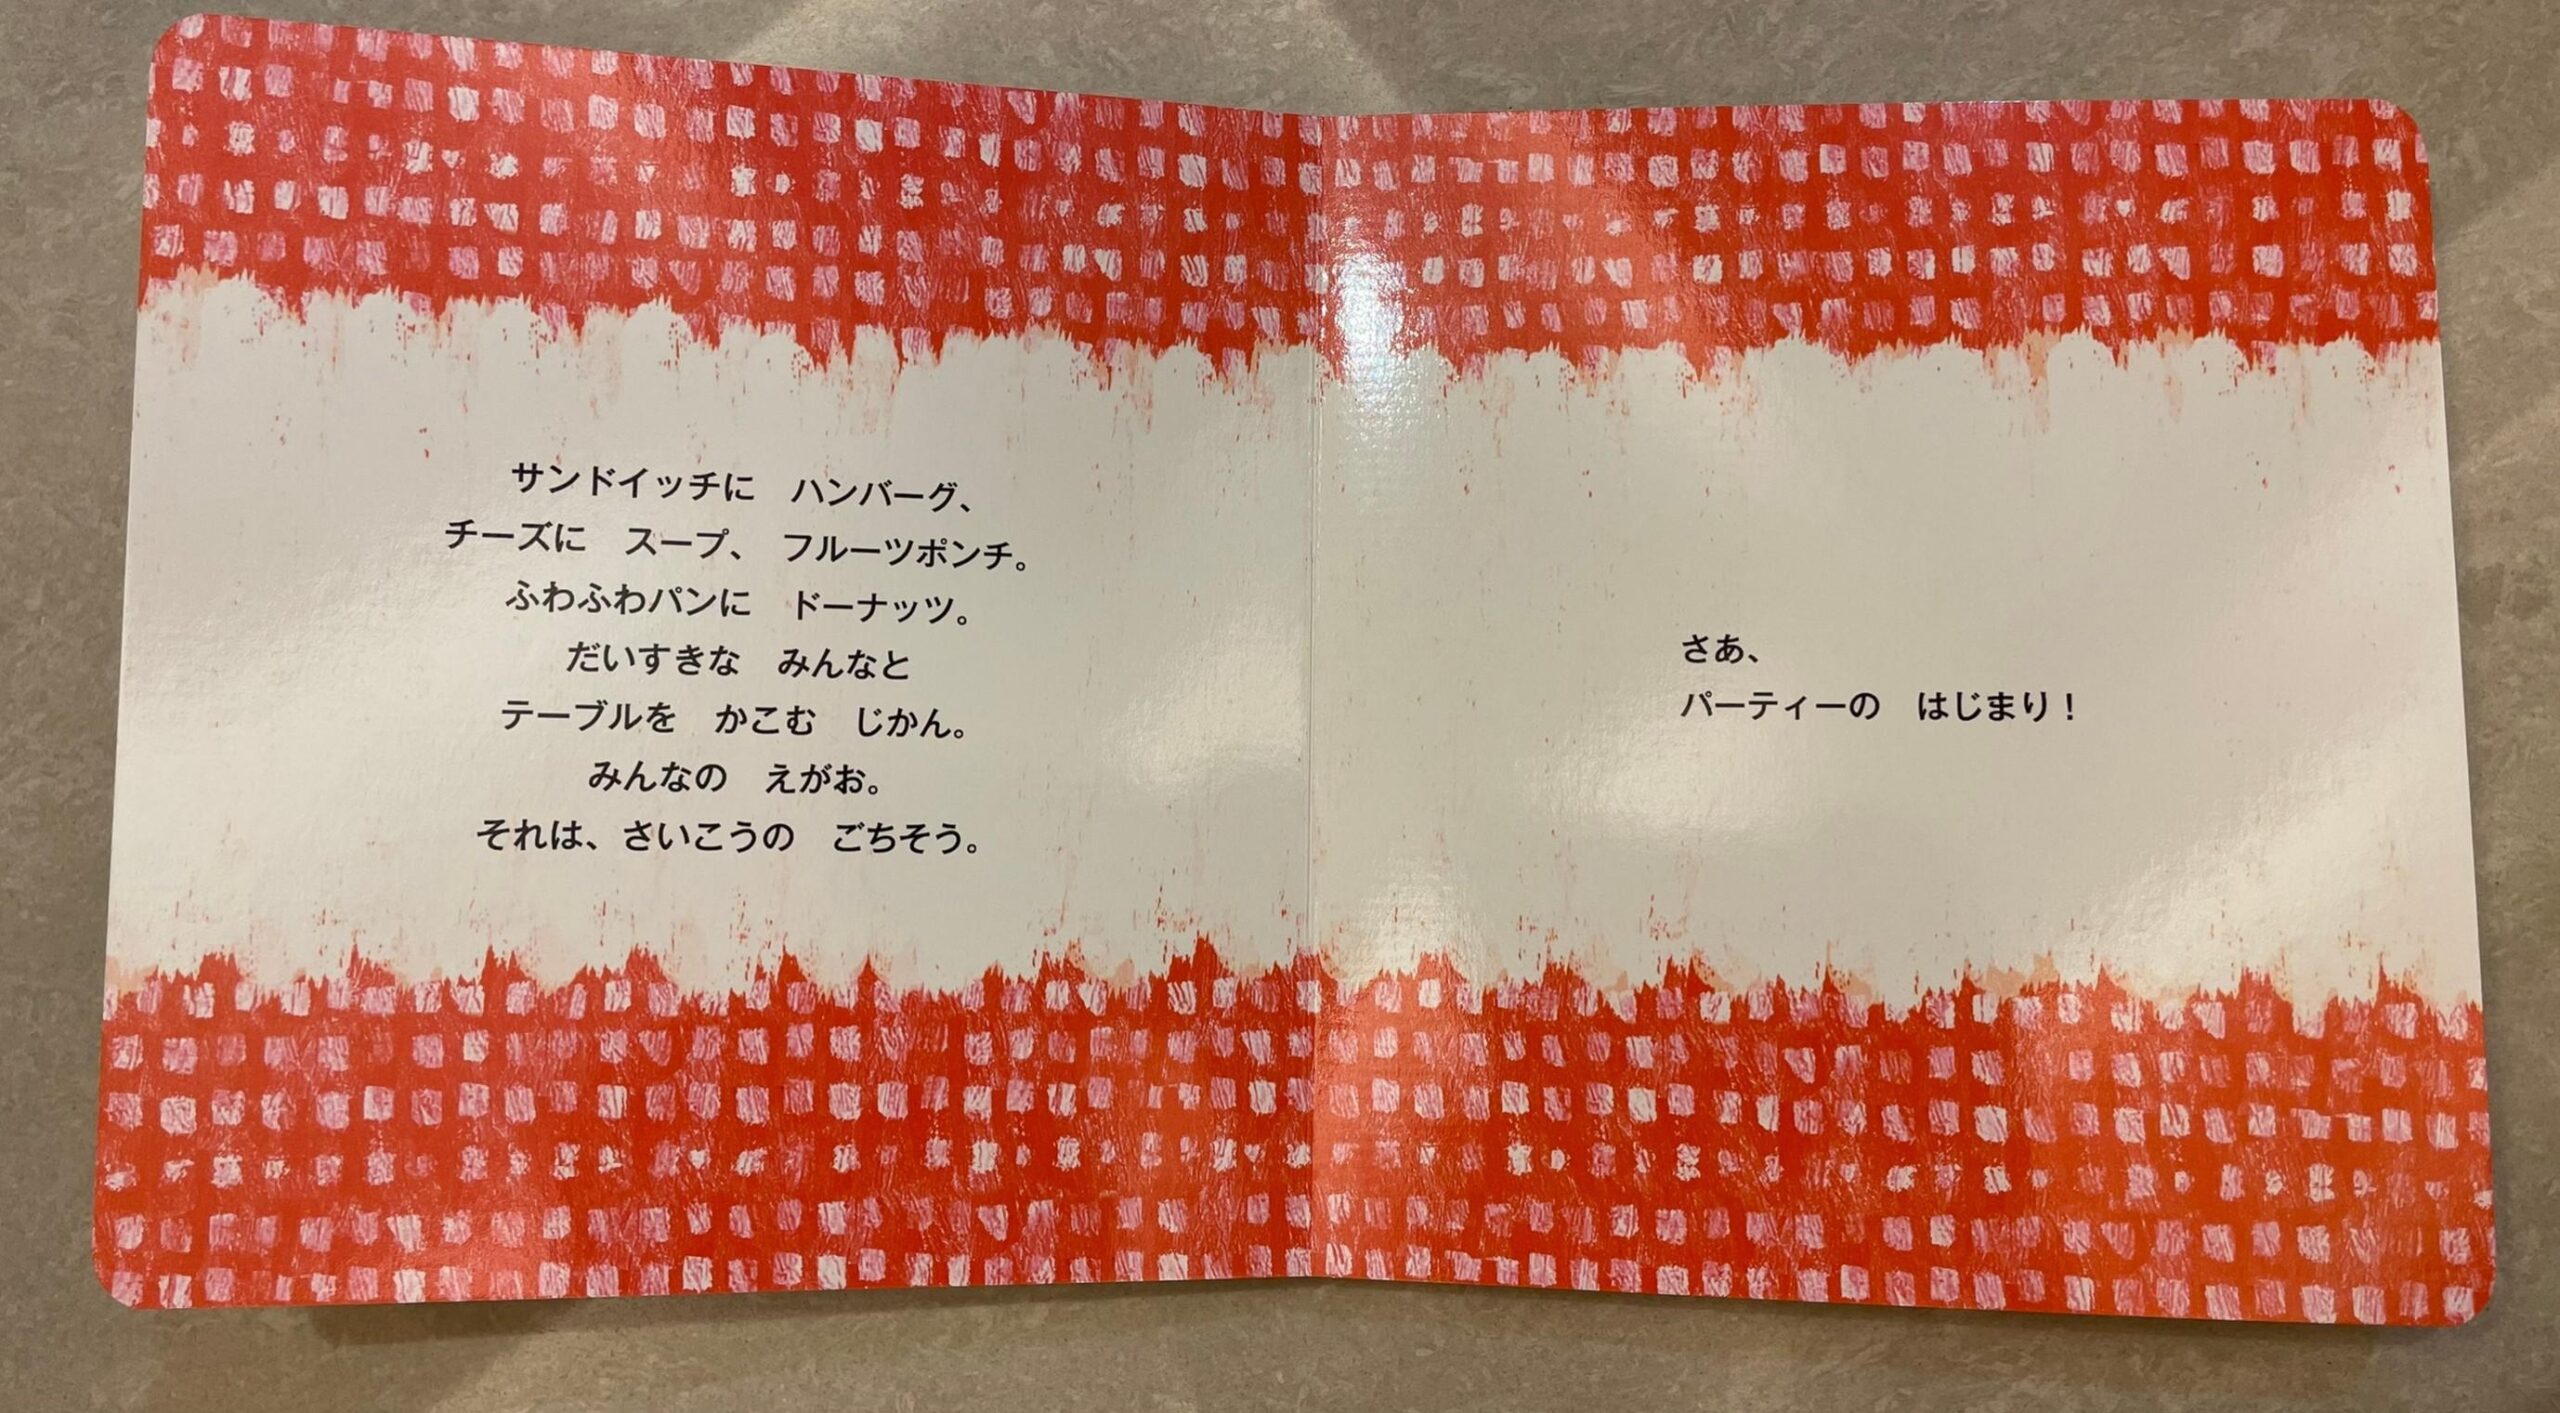 サンドイッチに　ハンバーグ、
チーズに　スープ、　フルーツポンチ。
ふわふわパンに　ドーナッツ。
だいすきな　みんなと
テーブルを　かこむ　じかん。
みんなの　えがお。
それは、さいこうの　ごちそう。
さあ、
パーティーの　はじまり！